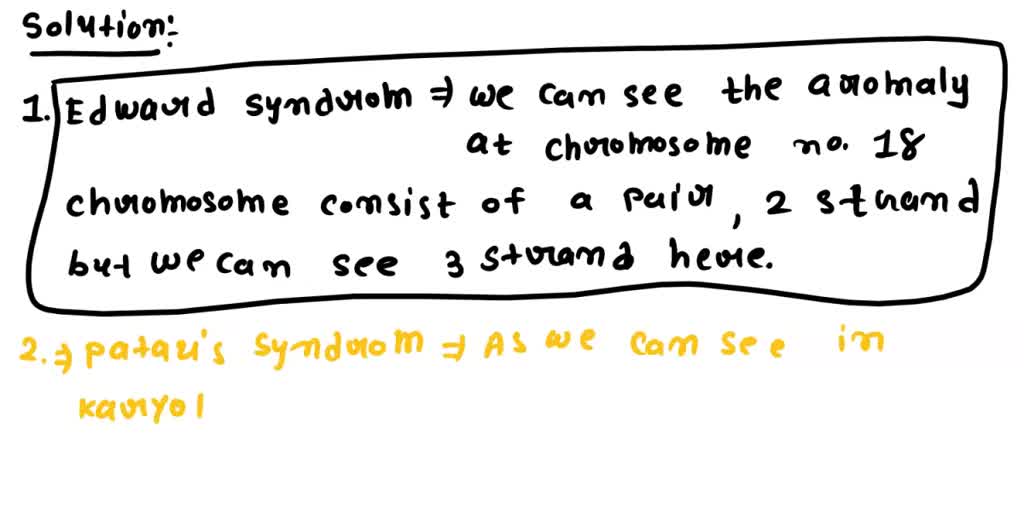 Solution:-
1. Edward syndrom ⇒ we can see the anomaly
at chromosome no. 18
chromosome consist of a pair, 2 strand
but we can see 3 strand here.
2. ⇒ patau's syndrom ⇒ As we can see in
karyol